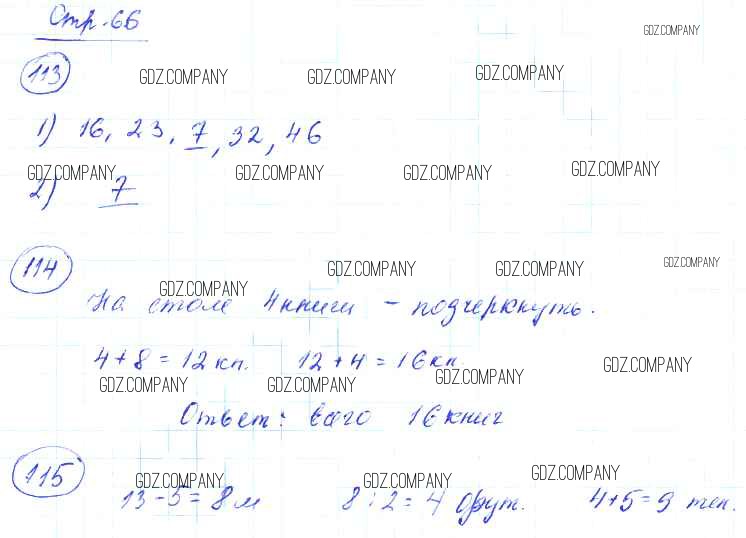 Стр. 66
GDZ.COMPANY
113
GDZ.COMPANY GDZ.COMPANY GDZ.COMPANY
1) 16, 23, 7, 32, 46
GDZ.COMPANY GDZ.COMPANY GDZ.COMPANY GDZ.COMPANY
2) 7
114
GDZ.COMPANY GDZ.COMPANY GDZ.COMPANY GDZ.COMPANY
На столе 4 книги - подчеркнуть.
4+8=12 кн. 12+4=16 кн.
GDZ.COMPANY GDZ.COMPANY GDZ.COMPANY
Ответ: всего 16 книг
115
GDZ.COMPANY GDZ.COMPANY GDZ.COMPANY
13-5=8 м 8:2=4 фут. 4+5=9 тен.